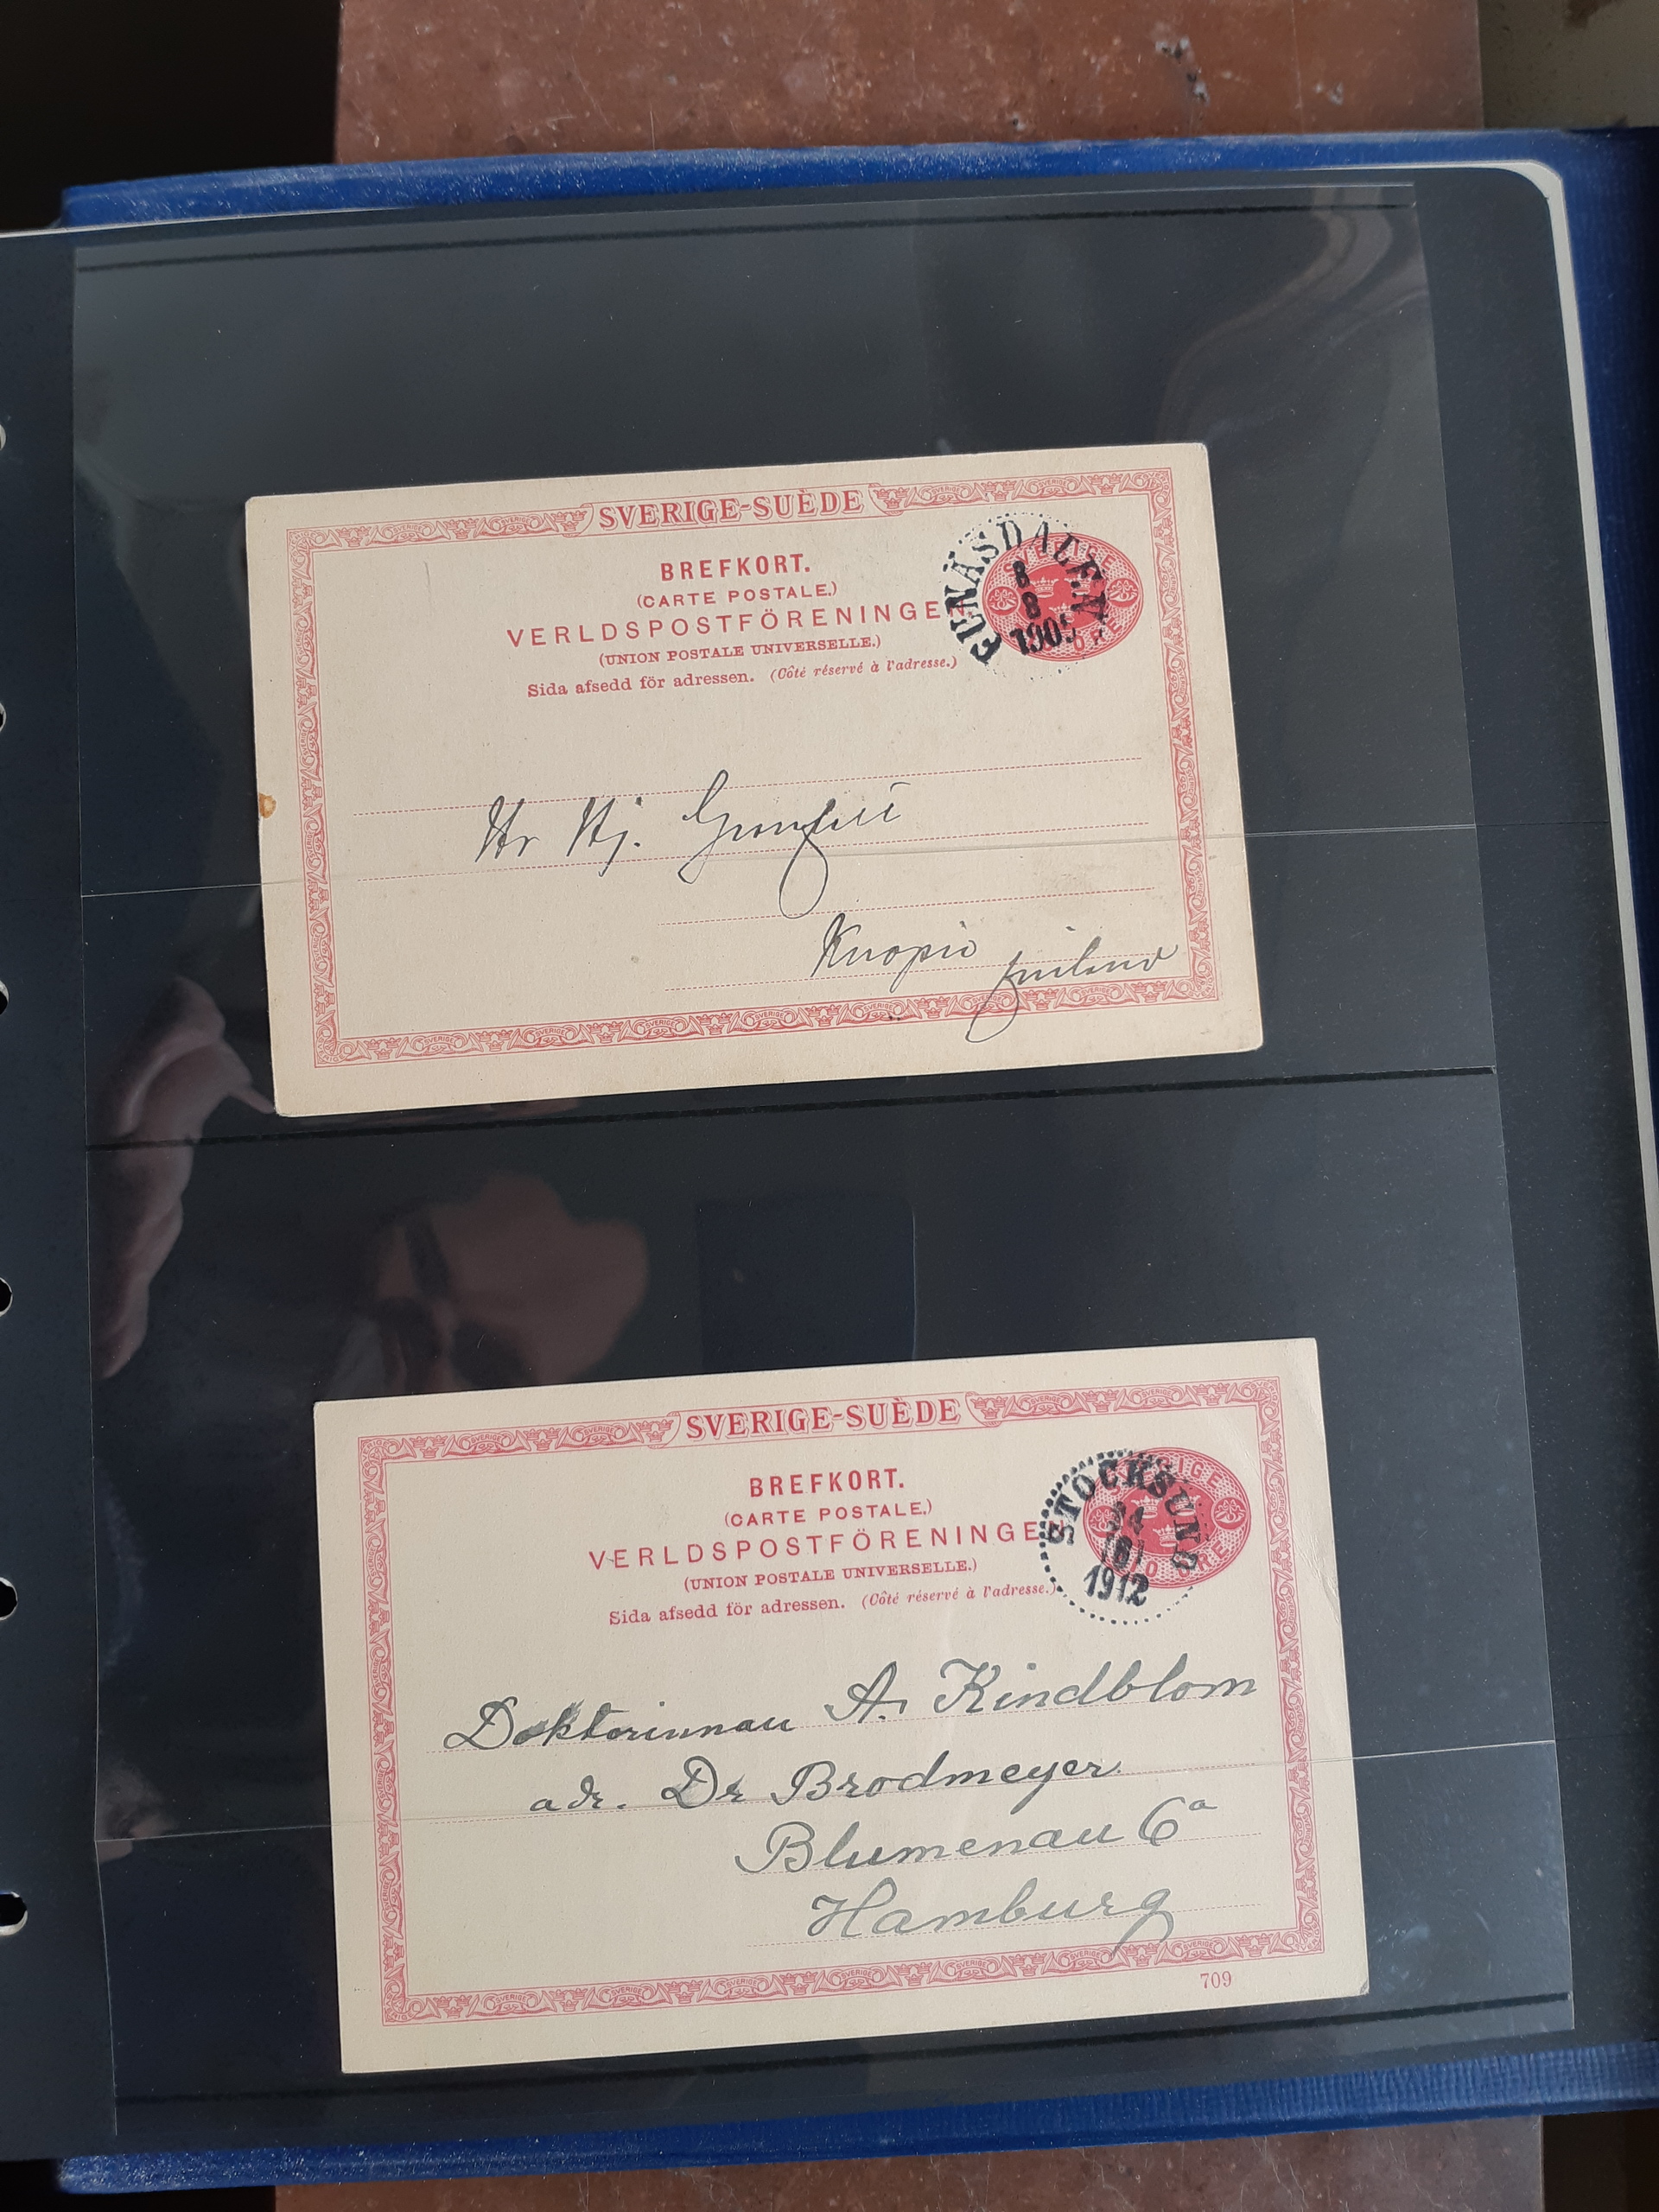 SVERIGE-SUÈDE
BREFKORT.
(CARTE POSTALE.)
VERLDSPOSTFÖRENINGEN
(UNION POSTALE UNIVERSELLE.)
Sida afsedd för adressen. (Côté réservé à l'adresse.)
FUNÄSDALEN
8
8
1905
SVERIGE
ÖRE
Hr Hj.
Kuopio Finland
SVERIGE-SUÈDE
BREFKORT.
(CARTE POSTALE.)
VERLDSPOSTFÖRENINGEN
(UNION POSTALE UNIVERSELLE.)
Sida afsedd för adressen. (Côté réservé à l'adresse.)
STOCKSUND
1912
SVERIGE
10 ÖRE
Doktorinnan A. Kindblom
adr. Dr Brodmeyer
Blumenau 6a
Hamburg
709